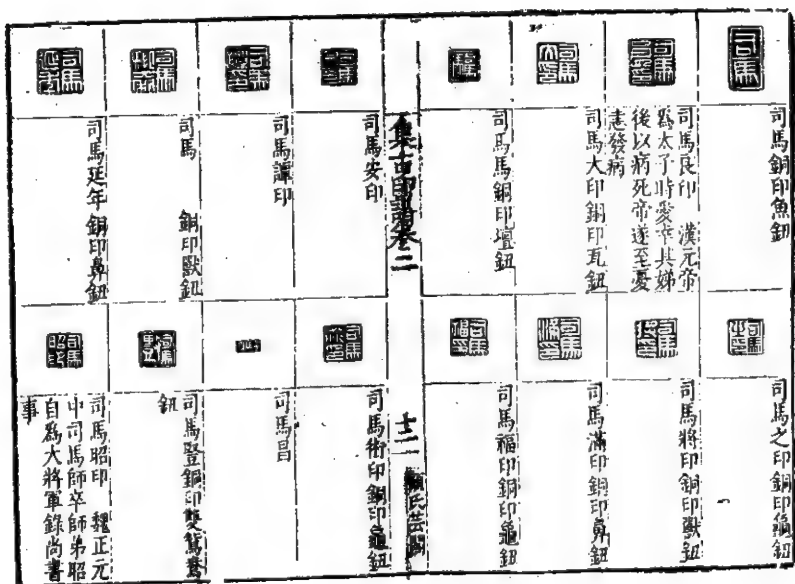 司馬
司馬銅印魚鈕
司馬良印　漢元帝
爲太子時愛幸其娣
後以病死帝遂至憂
恚發病
司馬大印銅印瓦鈕
司馬馬銅印壇鈕
司馬之印銅印龜鈕
司馬將印銅印獸鈕
司馬滿印銅印鼻鈕
司馬福印銅印龜鈕
集古印譜卷二
十二
顧氏芸閣
司馬安印
司馬譚印
司馬　　銅印獸鈕
司馬延年銅印鼻鈕
司馬術印銅印龜鈕
司馬昌
司馬豎銅印雙駕鴦
鈕
司馬昭印　魏正元
中司馬師卒師弟昭
自爲大將軍錄尚書
事